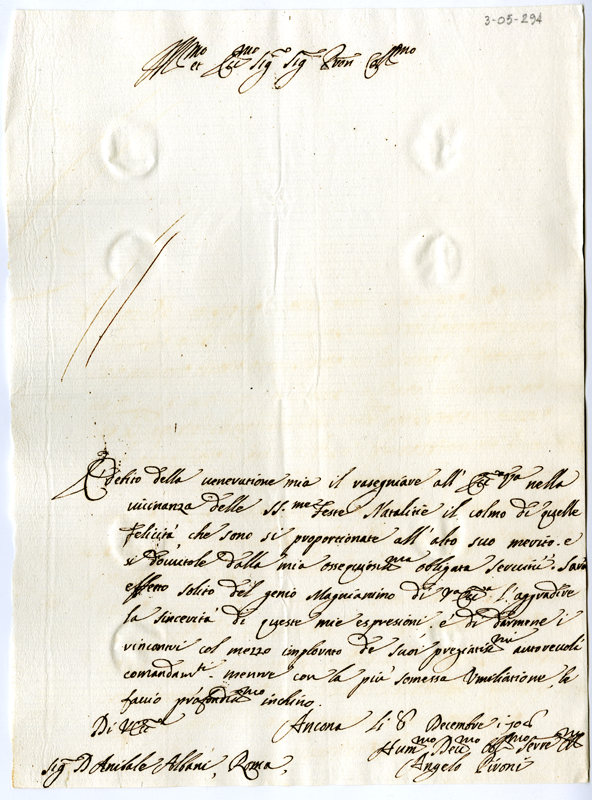 3-05-294
Ill.mo et Ecc.mo Sig.r Sig.r Pron Col.mo
È debito della venerazione mia il rasegniare all' Ecc.a V.a nella
vicinanza delle SS.me Feste Natalizie il colmo di quelle
felicità che sono si proporzionate all' alto suo merito. e
si dovutole dalla mia ossequiosis.ma obligata Servitù. Sarà
effetto solito del genio Magnianimo di V.a Ecc.a l' aggradire
la sincerità di queste mie espresioni. e di darmene i
rincontri col mezzo implorato de suoi pregiatis.mi autorevoli
comandam.ti. mentre con la più somessa Umiliazione, le
faccio profondis.mo inchino.
Di V. Ecc.a Ancona li 8 Decembre
Hum.mo Dev.mo Serre
Sig.r D Anibale Albani, Roma, Angelo Pironi